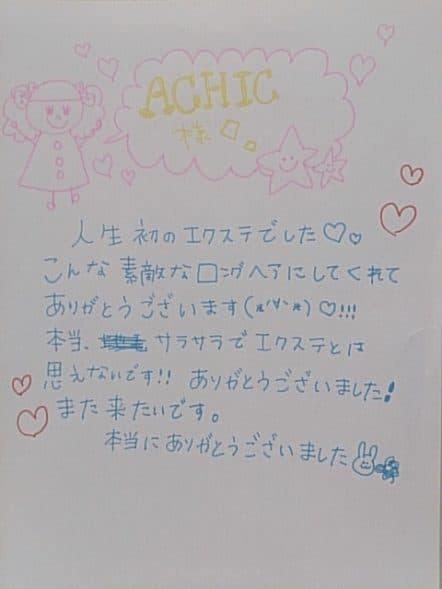 ACHIC
様
人生初のエクステでした♡♡
こんな素敵なロングヘアにしてくれて
ありがとうございます(*^∀^*)♡!!!
本当、サラサラでエクステとは
思えないです!! ありがとうございました!
また来たいです。
本当にありがとうございました